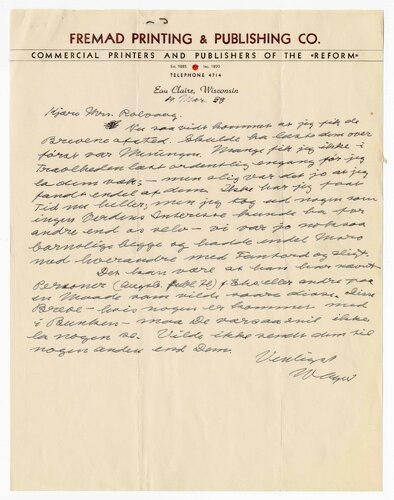 FREMAD PRINTING & PUBLISHING CO.
COMMERCIAL PRINTERS AND PUBLISHERS OF THE "REFORM"
Est. 1885 Inc. 1890
TELEPHONE 4714
Eau Claire, Wisconsin
Mar. 39
Kjære Mrs. Rolvaag.
Nu saavidt kommet at jeg fik de
Brevene afsted. Skulde ha læst dem over
først var Meningen. Mange fik jeg ikke i
Travlheden læst ordentlig engang før jeg
la dem væk, – men slig var det jo at jeg
fandt endel af dem. Ikke har jeg faat
Tid nu heller, men jeg tog ud nogen som
ingen Verdens Interesse kunde ha for
andre end os selv – vi var jo noksaa
barnslige begge og hadde endel Moro
med hverandre med Fanteord og sligt.
Det kan være at han har nævnt
Personer (Augsb. Publ. H) eller andre paa
en Maade som vilde saare disse. Disse
Breve – hvis nogen er kommet med
i Bunken – maa De versaasnil ikke
la nogen se. Vilde ikke sendt dem til
nogen anden end Dem.
Venligst
W Ager